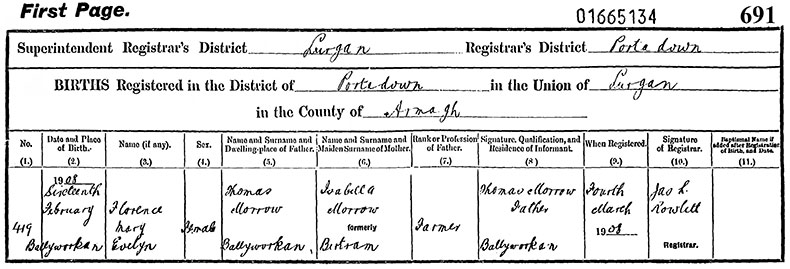 First Page. 01665134 691
Superintendent Registrar's District Lurgan Registrar's District Portadown
BIRTHS Registered in the District of Portadown in the Union of Lurgan
in the County of Armagh
No. Date and Place of Birth. Name (if any). Sex. Name and Surname and Dwelling-place of Father. Name and Surname and Maiden Surname of Mother. Rank or Profession of Father. Signature, Qualification, and Residence of Informant. When Registered. Signature of Registrar. Baptismal Name if added after Registration of Birth, and Date.
(1.) (2.) (3.) (4.) (5.) (6.) (7.) (8) (9.) (10.) (11.)
1908
Sixteenth Thomas Isabella Thomas Morrow Fourth Jas L.
February Florence Morrow Morrow Father March Rowlett
419 Mary Female formerly Farmer 1908
Ballyworkan Evelyn Ballyworkan, Bertram Ballyworkan Registrar.